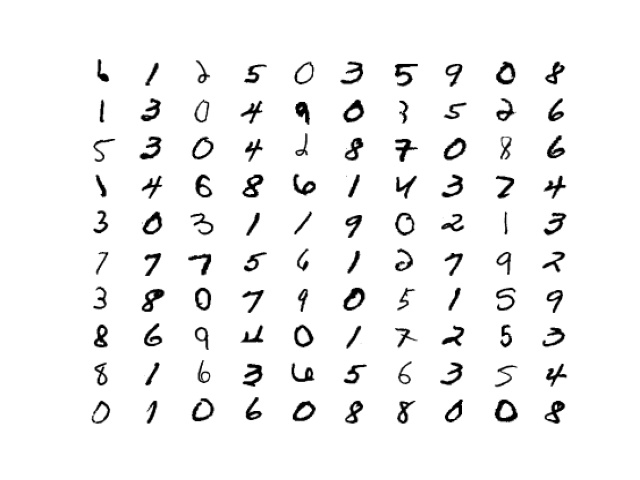 6 1 2 5 0 3 5 9 0 8
1 3 0 4 9 0 3 5 2 6
5 3 0 4 2 8 7 0 8 6
1 4 6 8 6 1 4 3 7 4
3 0 3 1 1 9 0 2 1 3
7 7 7 5 6 1 2 7 9 2
3 8 0 7 9 0 5 1 5 9
8 6 9 4 0 1 7 2 5 3
8 1 6 3 6 5 6 3 5 4
0 1 0 6 0 8 8 0 0 8